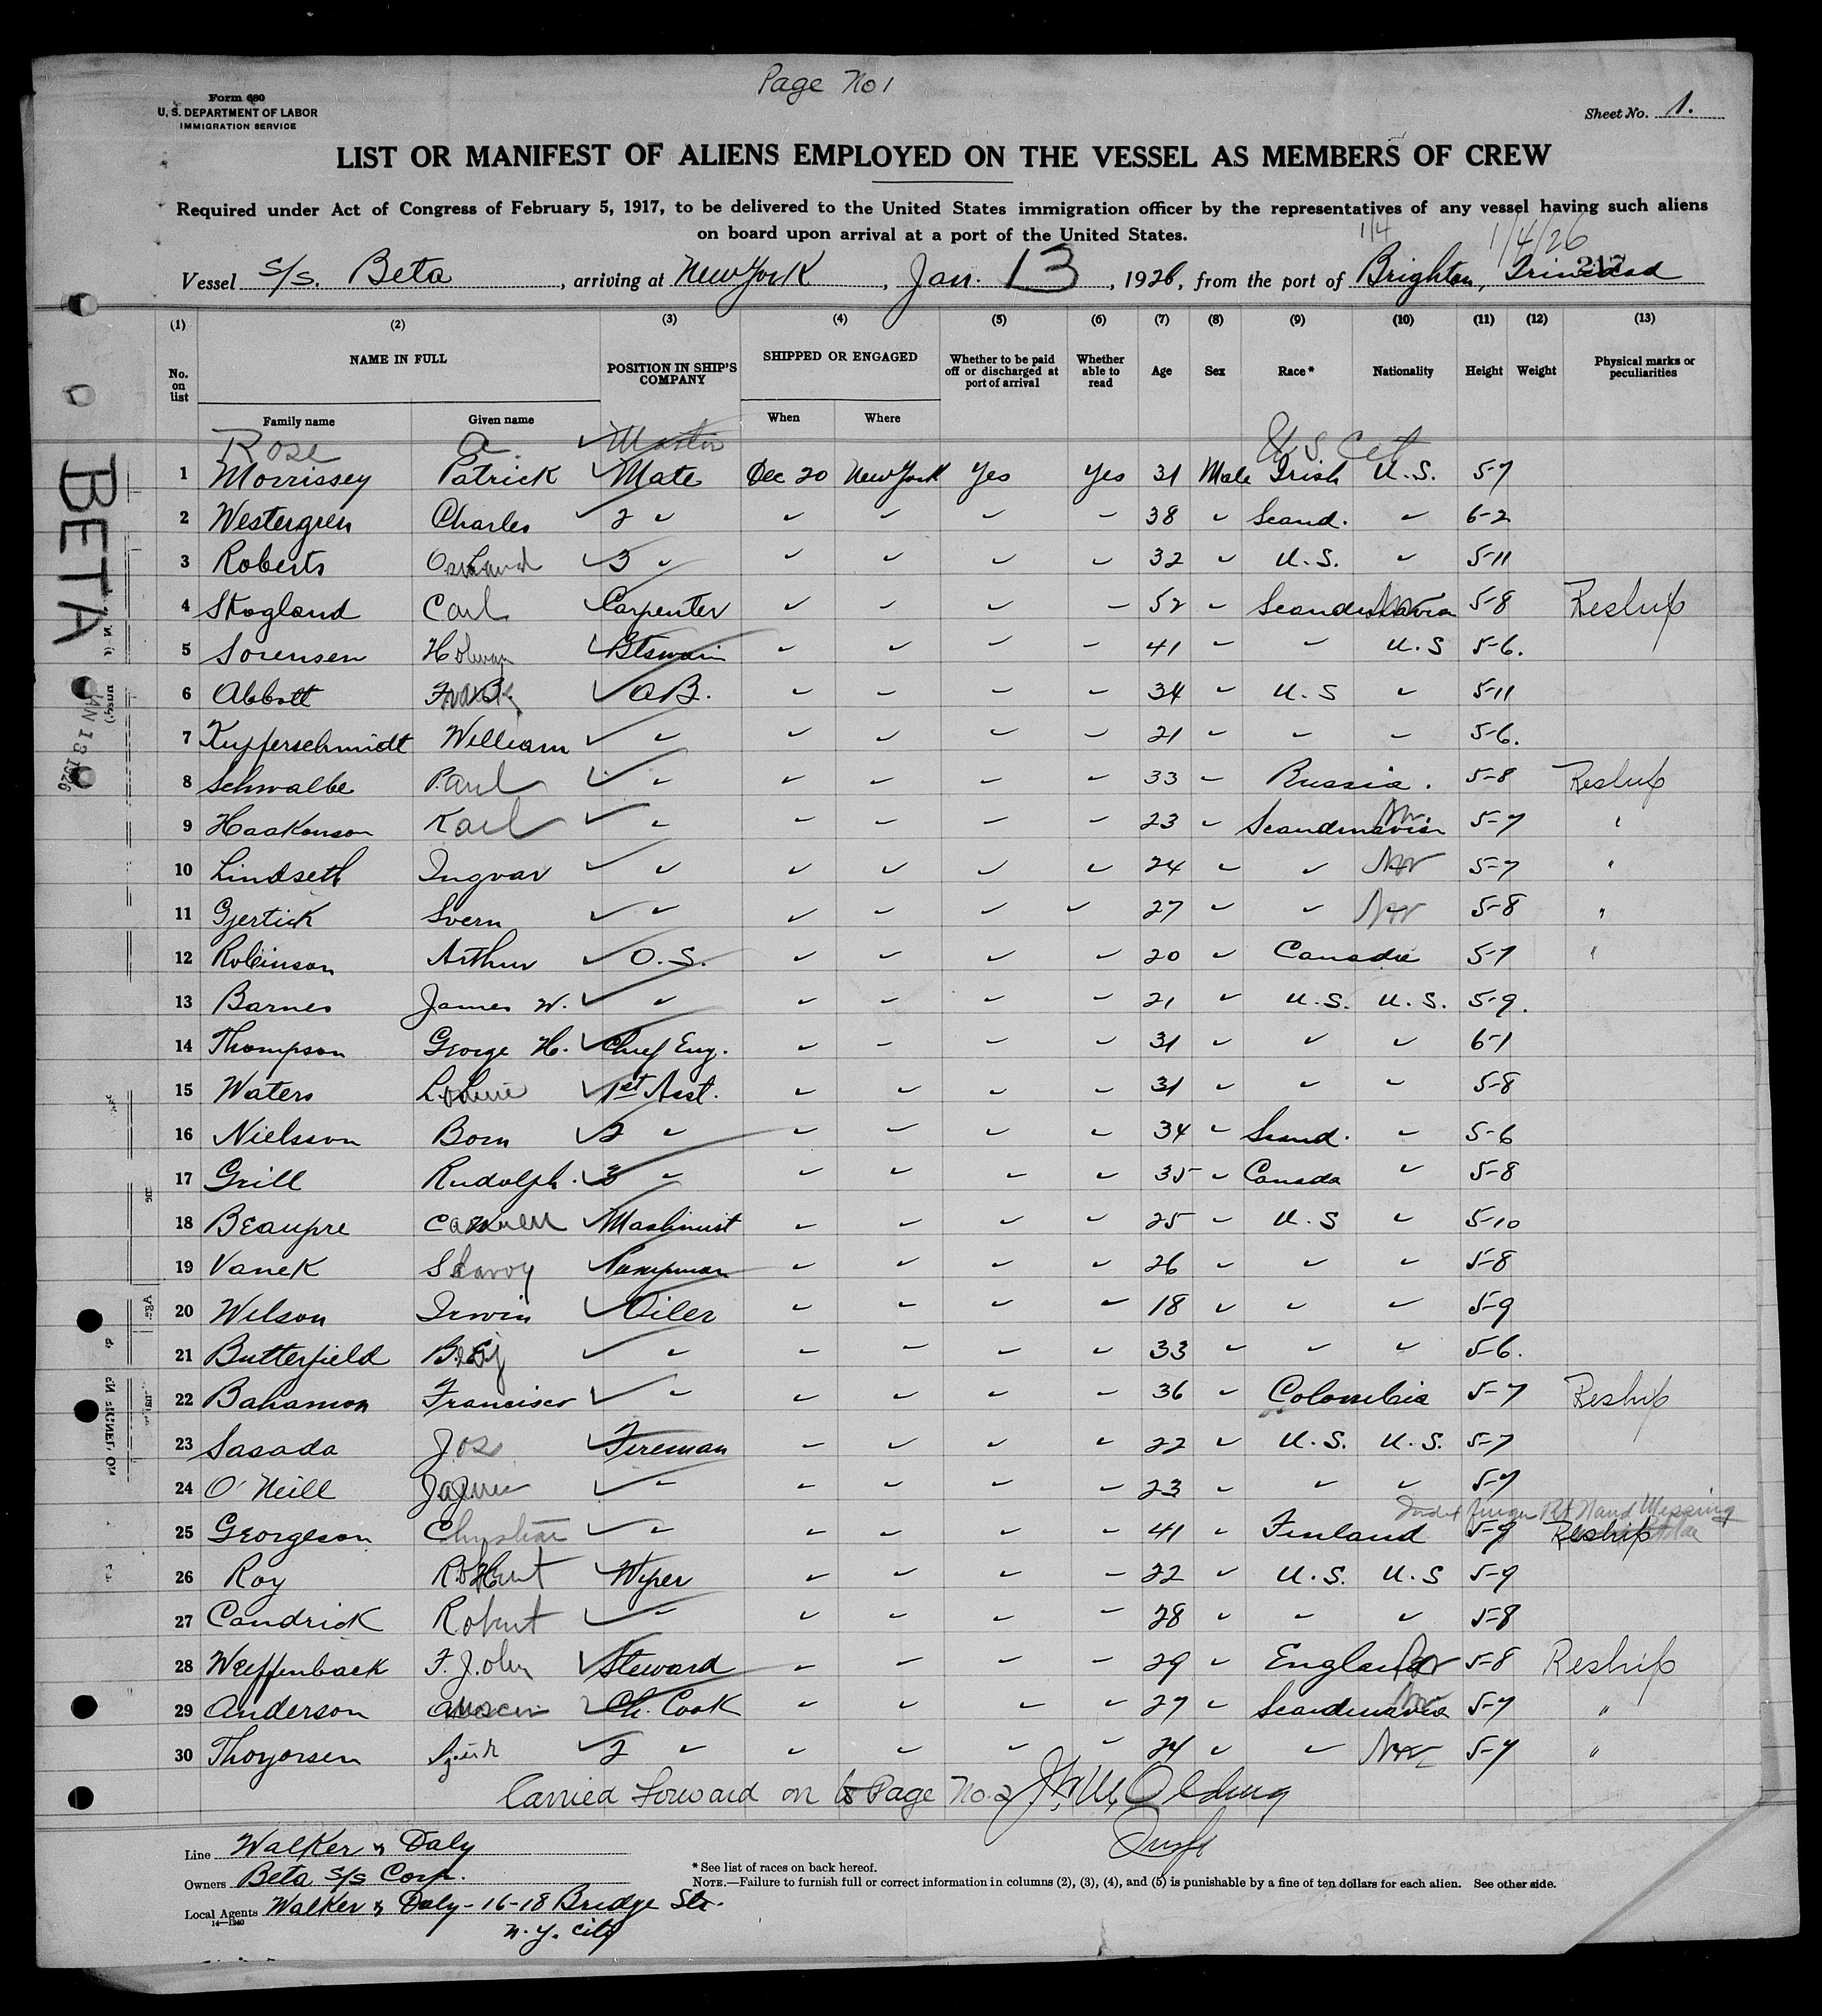 Page No 1
Form 680
U. S. DEPARTMENT OF LABOR
IMMIGRATION SERVICE
Sheet No. 1.
LIST OR MANIFEST OF ALIENS EMPLOYED ON THE VESSEL AS MEMBERS OF CREW
Required under Act of Congress of February 5, 1917, to be delivered to the United States immigration officer by the representatives of any vessel having such aliens
on board upon arrival at a port of the United States.
1/4 1/4/26
Vessel S/S. Beta, arriving at New York, Jan. 13, 1926, from the port of Brighton, Trinidad
(1) (2) (3) (4) (5) (6) (7) (8) (9) (10) (11) (12) (13)
No. on list NAME IN FULL POSITION IN SHIP'S COMPANY SHIPPED OR ENGAGED Whether to be paid off or discharged at port of arrival Whether able to read Age Sex Race* Nationality Height Weight Physical marks or peculiarities
Family name Given name When Where
Rose A. ✓ Master U S Cit
1 Morrissey Patrick ✓ Mate Dec 20 New York Yes Yes 31 Male Irish U.S. 5-7
2 Westergren Charles ✓ 2 " " " " " 38 " Scand. " 6-2
3 Roberts ✓ 3 " " " " " 32 " U.S. " 5-11
4 Skogland Carl ✓ Carpenter " " " " 52 " Scandinavia 5-8 Reship
5 Sorensen ✓ Btswain " " " " 41 " " U.S 5-6.
6 Abbott Frank ✓ A.B. " " " " 34 " U.S " 5-11
7 Kupferschmidt William ✓ " " " " " 21 " " " 5-6.
8 Schwalbe Paul ✓ " " " " " 33 " Russia. 5-8 Reship
9 Haakonson Karl ✓ " " " " " 23 " Scandinavia Nor 5-7 "
10 Lindseth Ingvar ✓ " " " " " 24 " " Nor 5-7 "
11 Gjertick Svern ✓ " " " " " 27 " " Nor 5-8 "
12 Robinson Arthur ✓ O.S. " " " " 20 " Canada 5-7 "
13 Barnes James W. ✓ " " " " " 21 " U.S. U.S. 5-9.
14 Thompson George H. ✓ Chief Eng. " " " " 31 " " " 6-1
15 Waters ✓ 1st Asst. " " " " 31 " " " 5-8
16 Nielsson Born ✓ 2 " " " " " 34 " Scand. " 5-6
17 Grill Rudolph. ✓ 3 " " " " " 35 " Canada " 5-8
18 Beaupre ✓ Machinist " " " " 25 " U.S " 5-10
19 Vanek ✓ Pumpman " " " " 26 " " " 5-8
20 Wilson Irwin ✓ Oiler " " " " 18 " " " 5-9
21 Butterfield ✓ " " " " " 33 " " " 5-6.
22 Bahamon Francisco ✓ " " " " " 36 " Colombia 5-7 Reship
23 Sasada Jos ✓ Fireman " " " " 22 " U.S. U.S. 5-7
24 O'Neill ✓ " " " " " 23 " " " 5-7
Index finger Rt Hand Missing
25 Georgeson ✓ " " " " " 41 " Finland 5-9 Reship
26 Roy Robert ✓ Wiper " " " " 22 " U.S. U.S 5-9
27 Candrick Robert ✓ " " " " " 28 " " " 5-8
28 Weiffenback F. John ✓ Steward " " " " 29 " England 5-8 Reship
29 Anderson ✓ Ch. Cook " " " " 27 " Scandinavia Nor 5-7 "
30 Thoyorsen ✓ 2 " " " " " 24 " " Nor 5-7 "
Carried Forward on to Page No. 2
Line Walker & Daly
Owners Beta S/S Corp.
Local Agents Walker & Daly - 16-18 Bridge Str.
N.Y. City
14—1240
* See list of races on back hereof.
NOTE.—Failure to furnish full or correct information in columns (2), (3), (4), and (5) is punishable by a fine of ten dollars for each alien. See other side.
BETA
JAN 13 1926